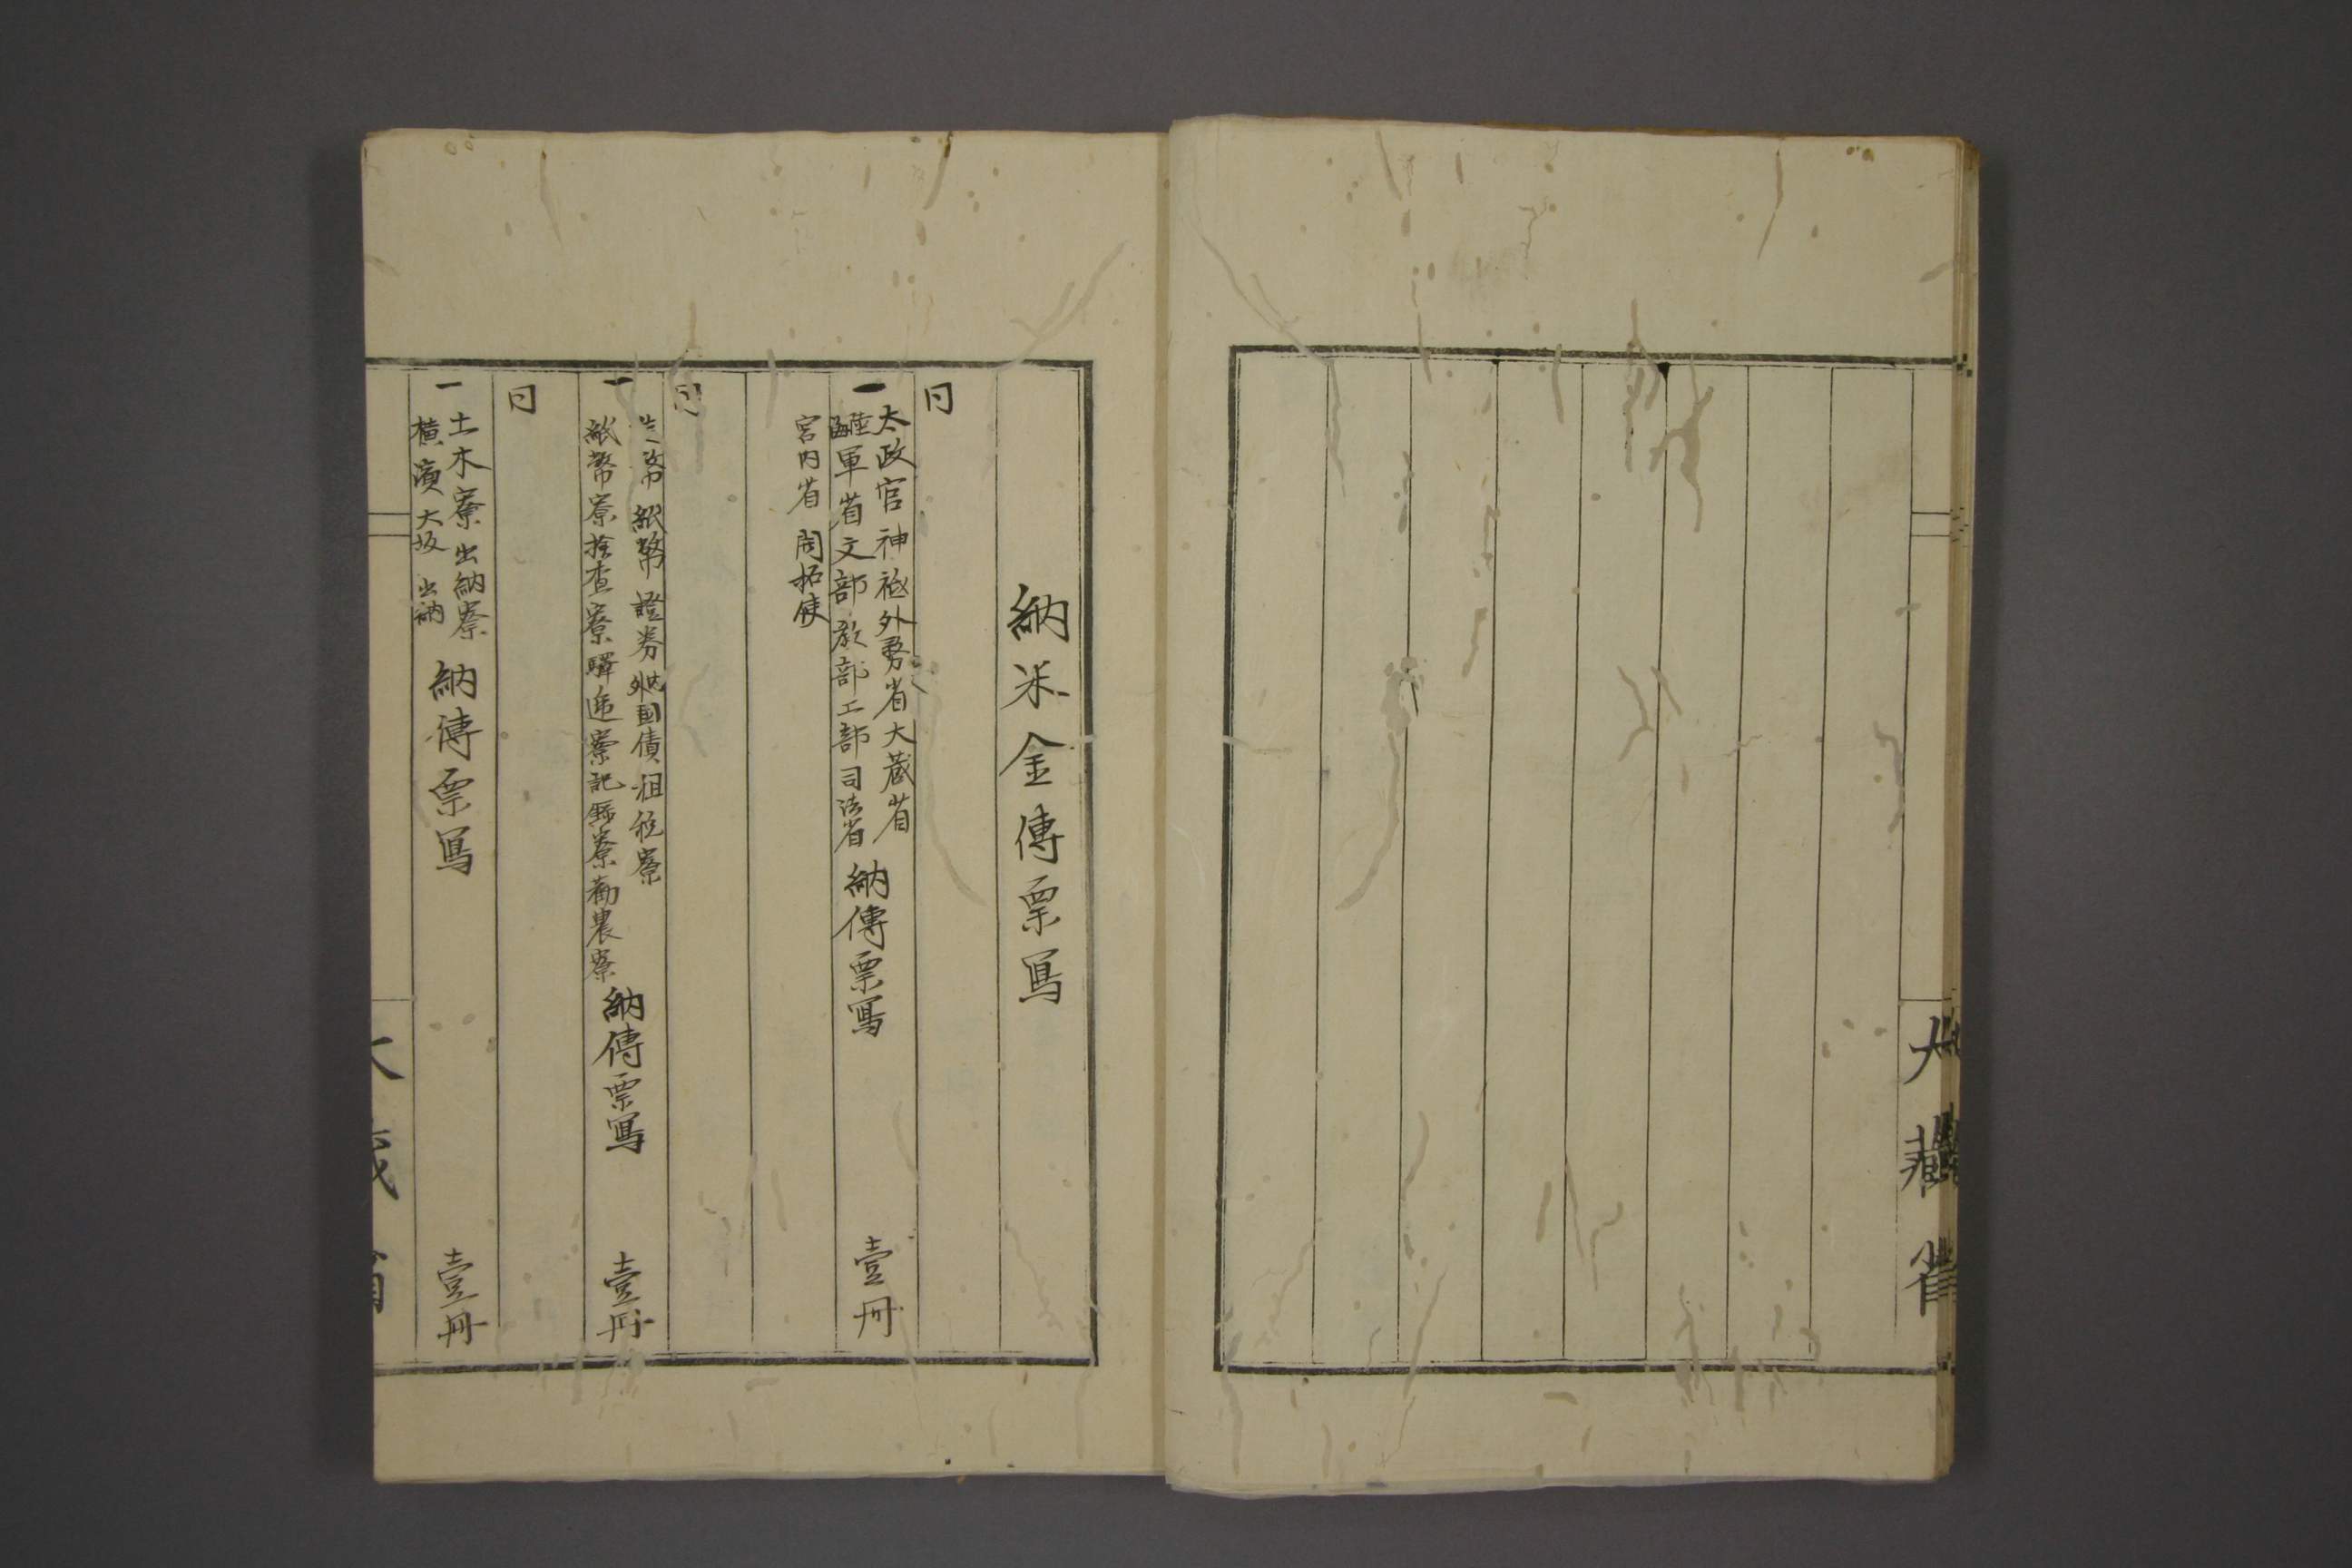 大藏省
納米金傳票寫
同
一 太政官 神祇 外務省 大蔵省
陸海軍省 文部 教部 工部 司法省 納傳票寫 壹冊
宮内省 開拓使
同
紙幣 證券 内外国債 租税寮
一 紙幣寮 検査寮 驛逓寮 記録寮 勧農寮 納傳票寫 壹冊
同
一 土木寮 出納寮
横濱 大坂 出納 納傳票寫 壹冊
大蔵省